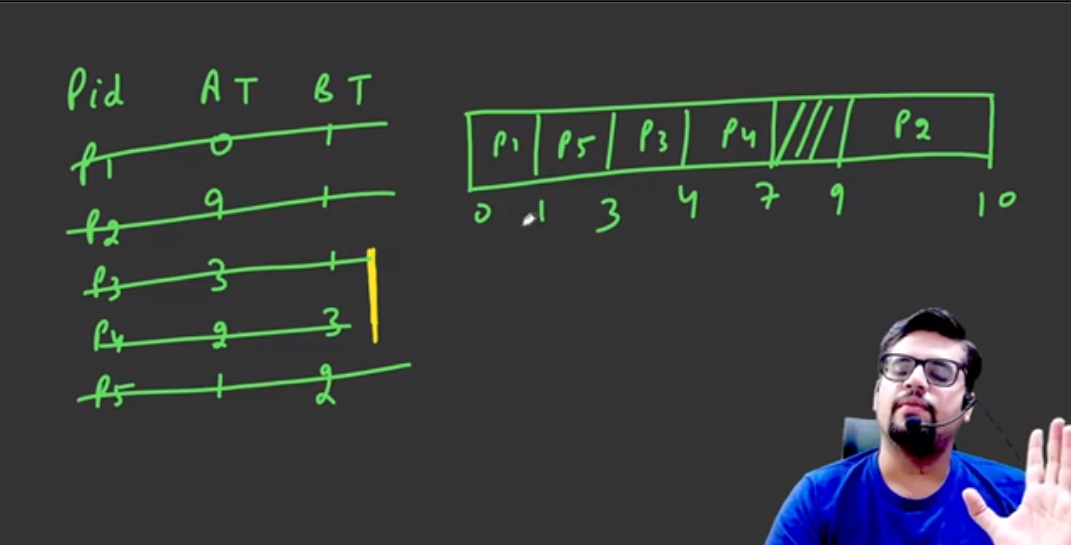 Pid AT BT
P1 0 1
P2 9 1
P3 3 1
P4 2 3
P5 1 2
P1 P5 P3 P4 P2
0 1 3 4 7 9 10